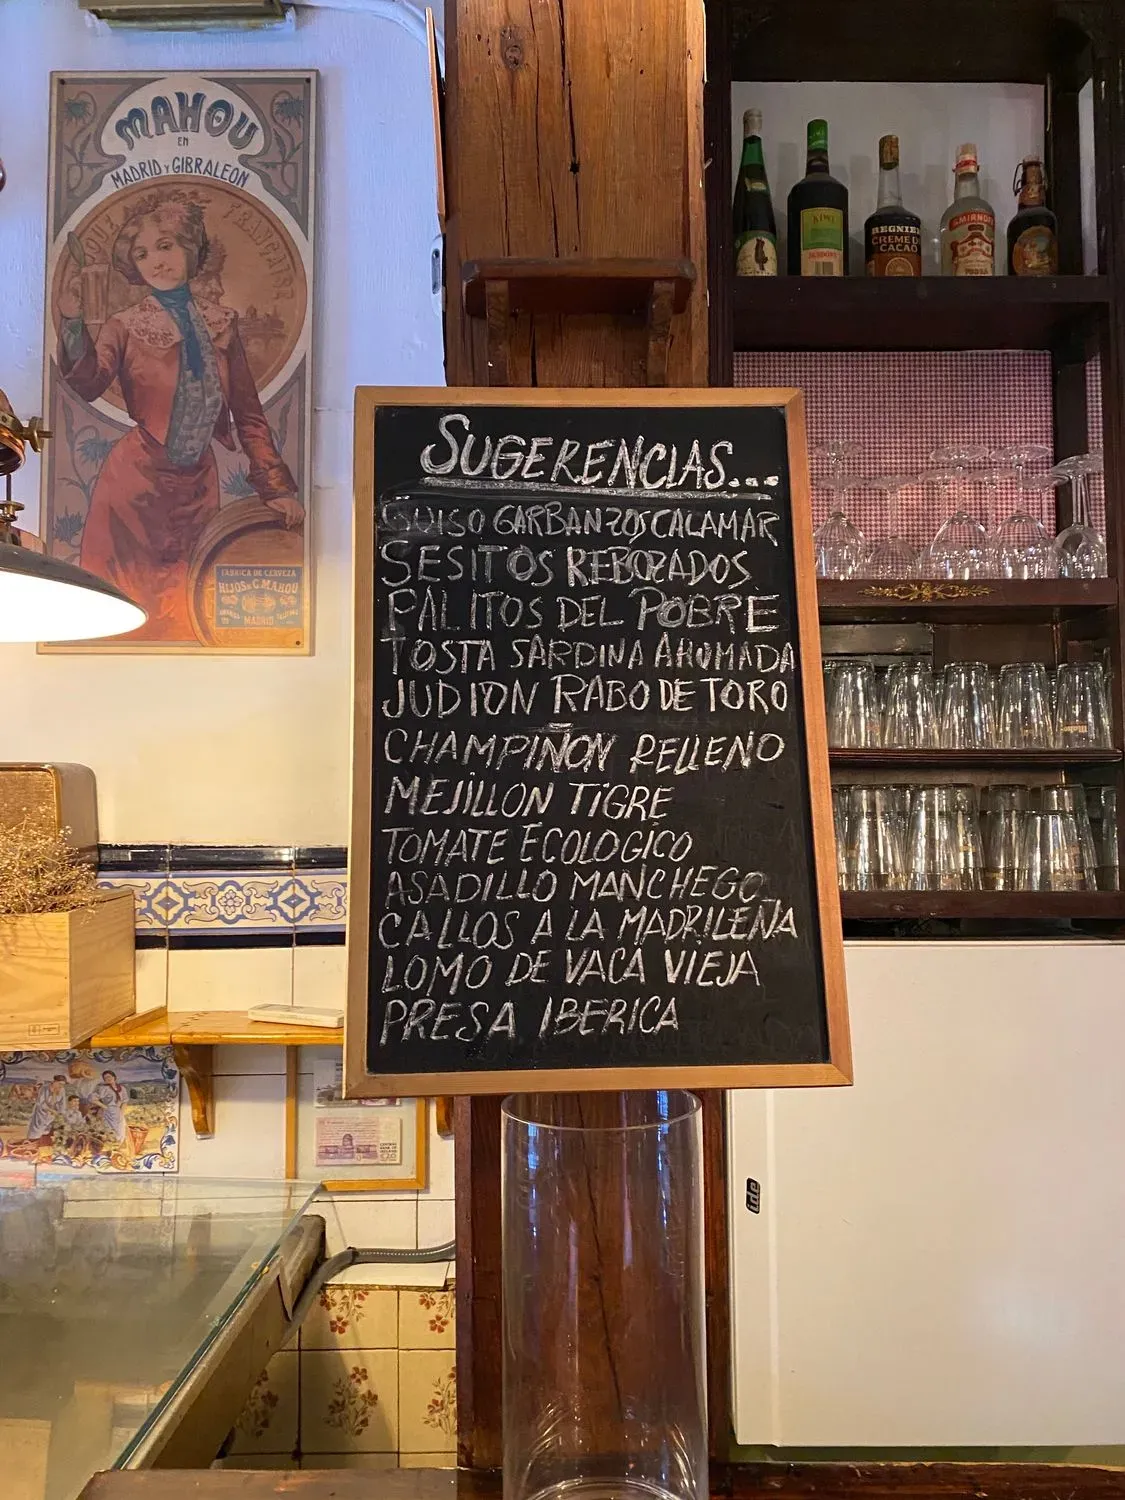 MAHOU
EN
MADRID Y GIBRALEON
FABRICA DE CERVEZA
HIJOS DE C. MAHOU
MADRID
KIWI
REGNIER
CREME DE
CACAO
SMIRNOFF
VODKA
SUGERENCIAS...
GUISO GARBANZOS CALAMAR
SESITOS REBOZADOS
PALITOS DEL POBRE
TOSTA SARDINA AHUMADA
JUDION RABO DE TORO
CHAMPIÑON RELLENO
MEJILLON TIGRE
TOMATE ECOLOGICO
ASADILLO MANCHEGO
CALLOS A LA MADRILEÑA
LOMO DE VACA VIEJA
PRESA IBERICA
CENTRAL
BANK OF
IRELAND
£20
ide